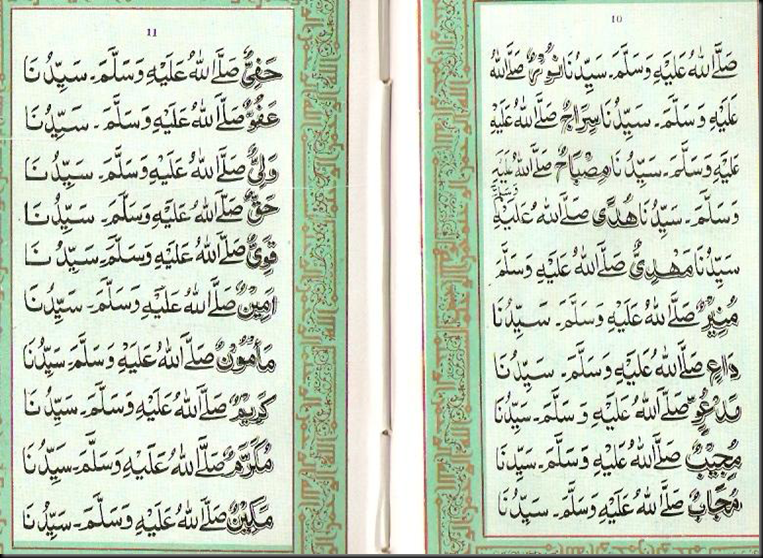 10
صَلَّى اللهُ عَلَيْهِ وَسَلَّمَ۔ سَيِّدُنَا نُوْرٌ صَلَّى اللهُ
عَلَيْهِ وَسَلَّمَ۔ سَيِّدُنَا سِرَاجٌ صَلَّى اللهُ عَلَيْهِ
عَلَيْهِ وَسَلَّمَ۔ سَيِّدُنَا مِصْبَاحٌ صَلَّى اللهُ عَلَيْهِ
وَسَلَّمَ
وَسَلَّمَ۔ سَيِّدُنَا هُدًى صَلَّى اللهُ عَلَيْهِ
سَيِّدُنَا مَهْدِيٌّ صَلَّى اللهُ عَلَيْهِ وَسَلَّمَ
مُنِيْرٌ صَلَّى اللهُ عَلَيْهِ وَسَلَّمَ۔ سَيِّدُنَا
دَاعٍ صَلَّى اللهُ عَلَيْهِ وَسَلَّمَ۔ سَيِّدُنَا
مَدْعُوٌّ صَلَّى اللهُ عَلَيْهِ وَسَلَّمَ۔ سَيِّدُنَا
مُجِيْبٌ صَلَّى اللهُ عَلَيْهِ وَسَلَّمَ۔ سَيِّدُنَا
مُجَابٌ صَلَّى اللهُ عَلَيْهِ وَسَلَّمَ۔ سَيِّدُنَا
11
حَفِيٌّ صَلَّى اللهُ عَلَيْهِ وَسَلَّمَ۔ سَيِّدُنَا
عَفُوٌّ صَلَّى اللهُ عَلَيْهِ وَسَلَّمَ۔ سَيِّدُنَا
وَلِيٌّ صَلَّى اللهُ عَلَيْهِ وَسَلَّمَ۔ سَيِّدُنَا
حَقٌّ صَلَّى اللهُ عَلَيْهِ وَسَلَّمَ۔ سَيِّدُنَا
قَوِيٌّ صَلَّى اللهُ عَلَيْهِ وَسَلَّمَ۔ سَيِّدُنَا
اَمِيْنٌ صَلَّى اللهُ عَلَيْهِ وَسَلَّمَ۔ سَيِّدُنَا
مَأْمُوْنٌ صَلَّى اللهُ عَلَيْهِ وَسَلَّمَ۔ سَيِّدُنَا
كَرِيْمٌ صَلَّى اللهُ عَلَيْهِ وَسَلَّمَ۔ سَيِّدُنَا
مُكَرَّمٌ صَلَّى اللهُ عَلَيْهِ وَسَلَّمَ۔ سَيِّدُنَا
مَكِيْنٌ صَلَّى اللهُ عَلَيْهِ وَسَلَّمَ۔ سَيِّدُنَا